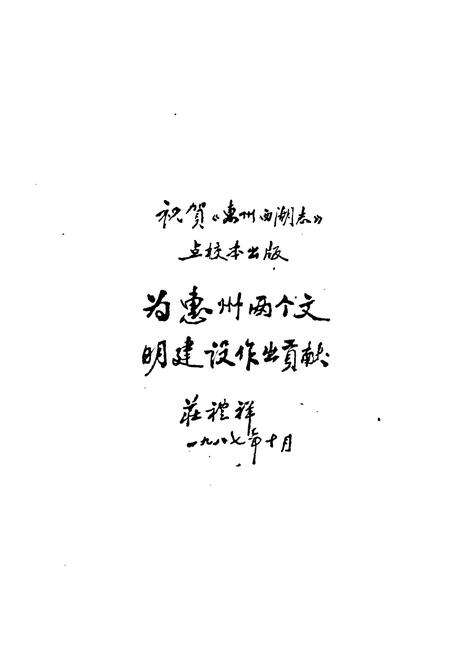 祝賀《惠州西湖志》
点校本出版
为惠州两个文
明建设作出貢献
莊禮祥
一九八七年十月